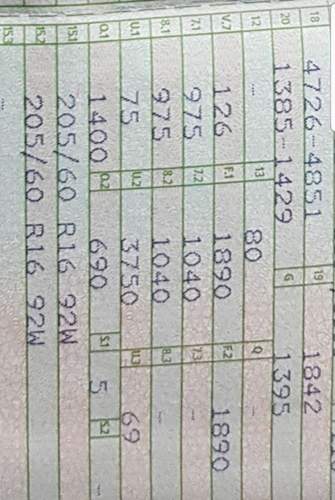 18 4726-4851 19 1842
20 1385-1429 G 1395
12 -- 13 80 Q -
V.7 126 F.1 1890 F.2 1890
7.1 975 7.2 1040 7.3 -
8.1 975 8.2 1040 8.3 -
U.1 75 U.2 3750 U.3 69
O.1 1400 O.2 690 S.1 5 S.2 -
15.1 205/60 R16 92W
15.2 205/60 R16 92W
15.3 --